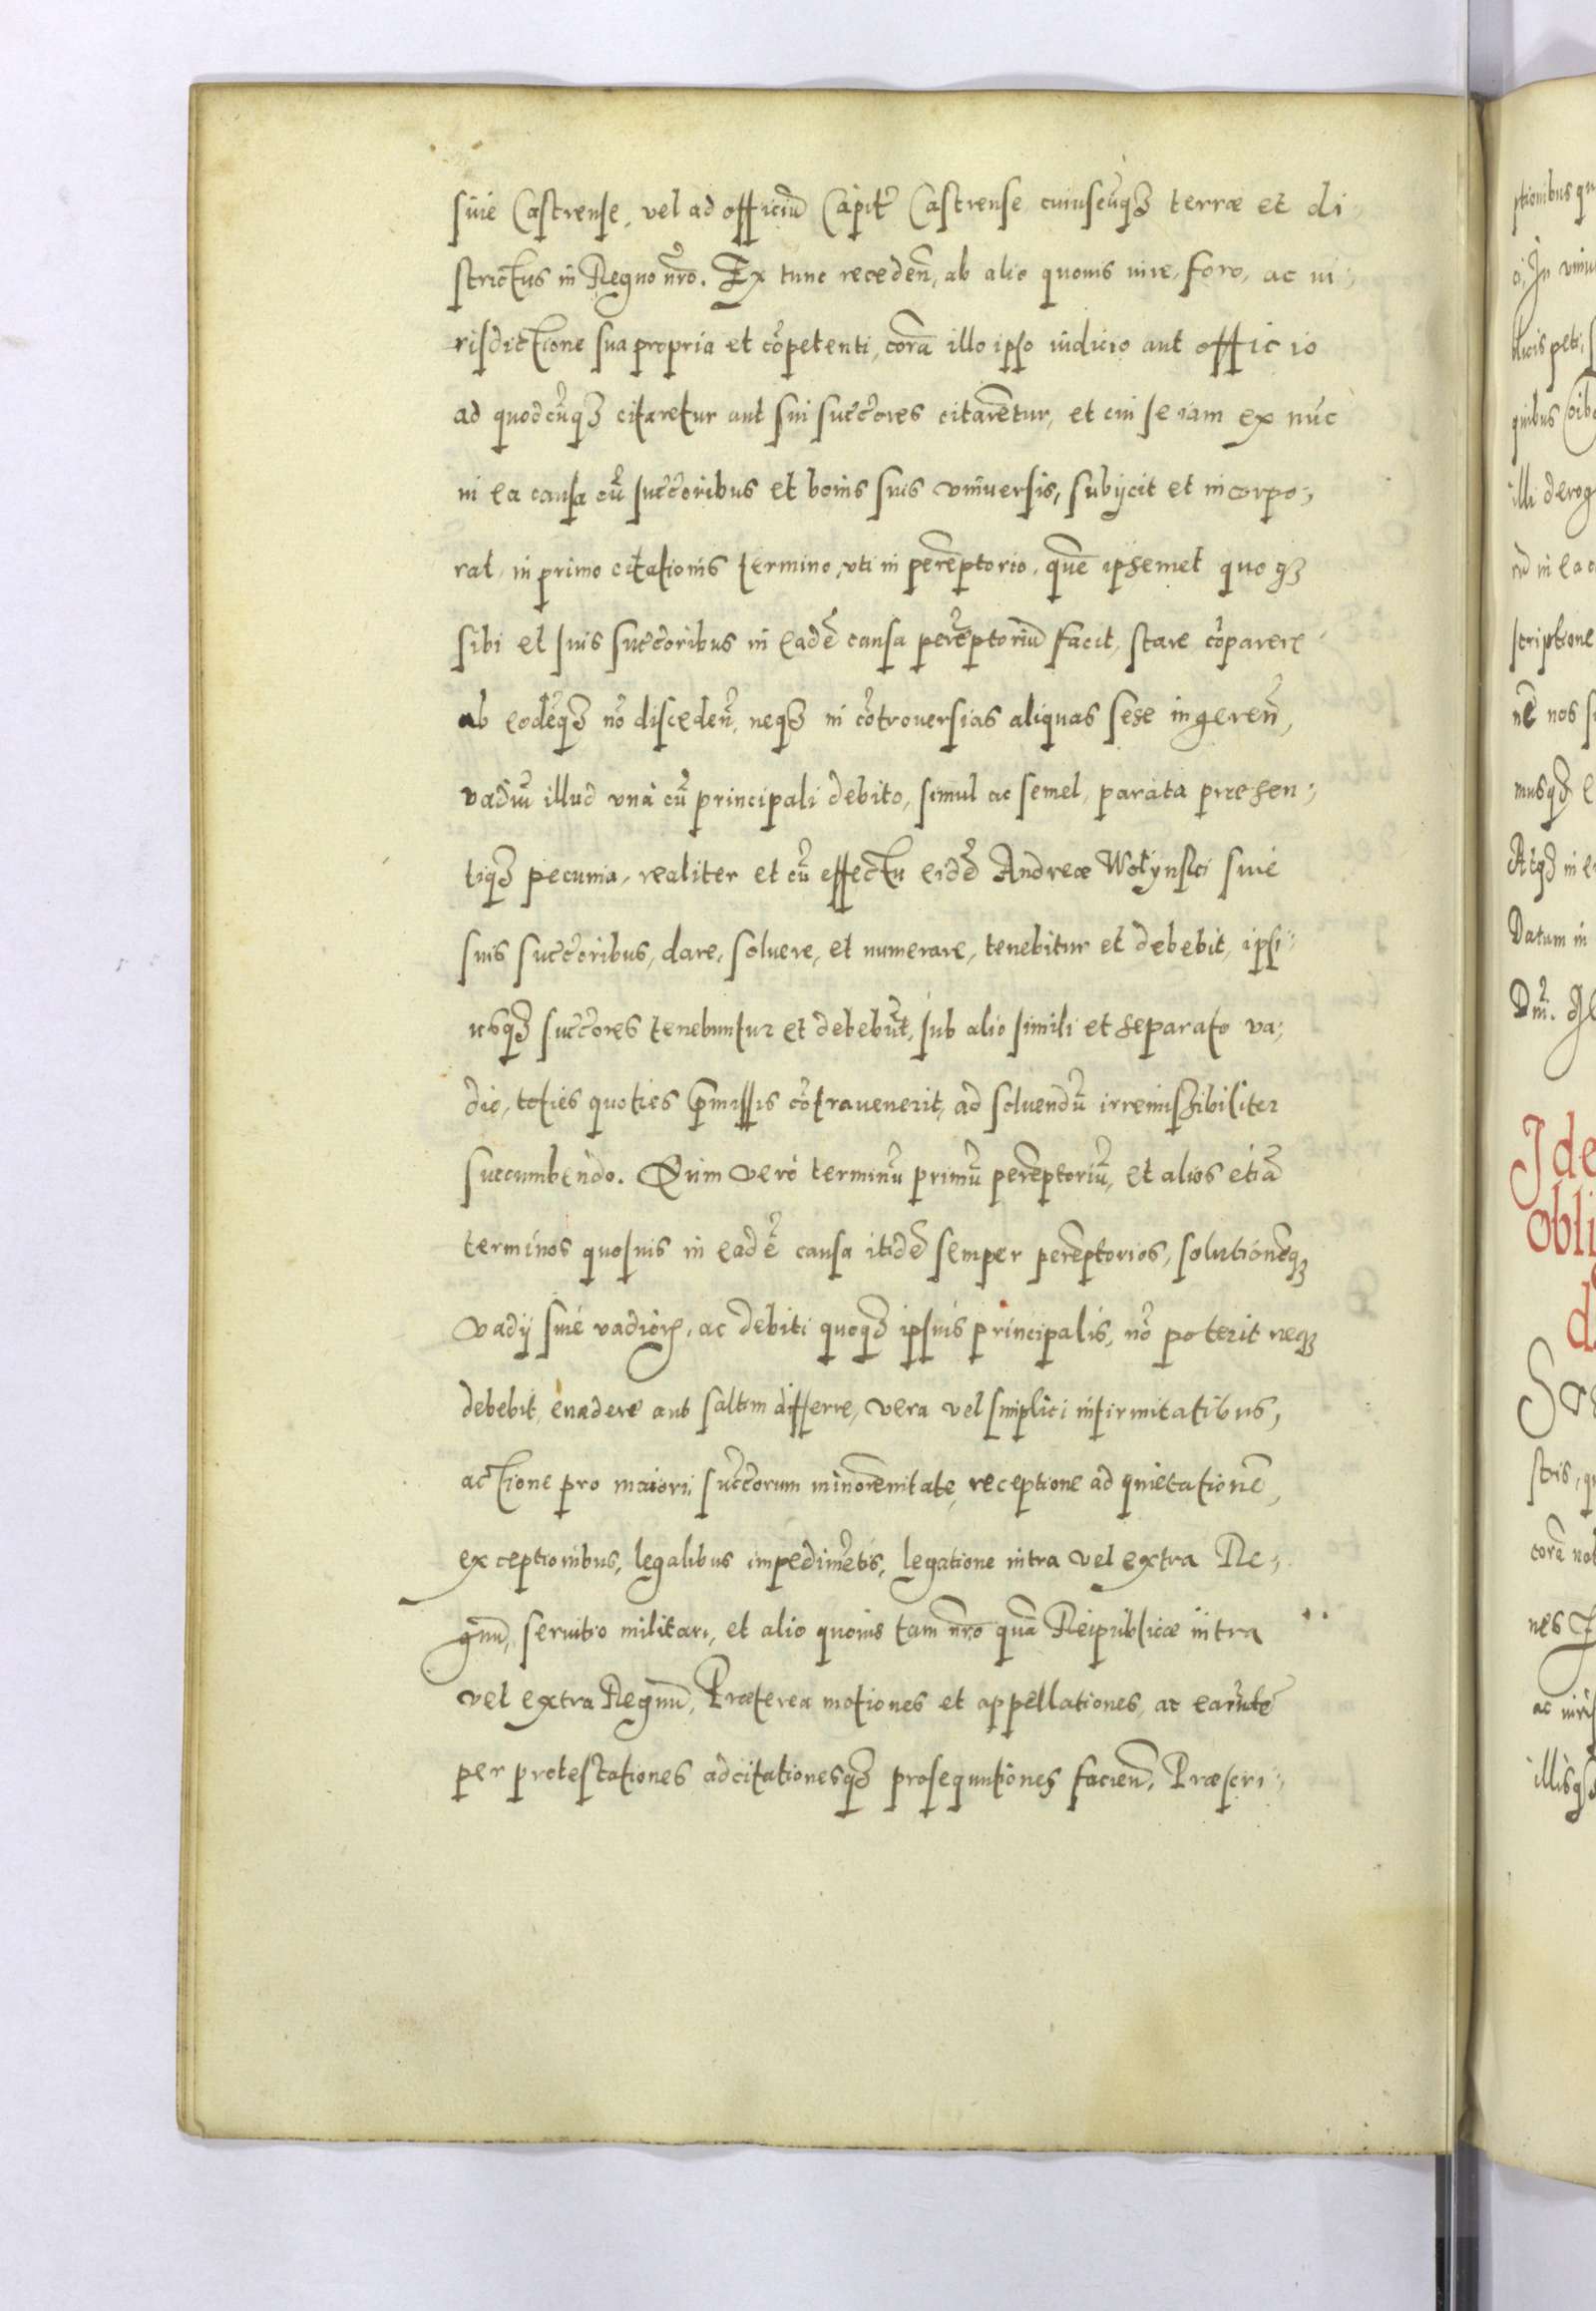 siue Castrense, vel ad officiū Capitr̃ Castrense cuiuscūqȝ terræ et di,
strictus in Regno nr̃o. Ex tunc recedeñ, ab alio quouis iure, foro, ac iu,
risdictione sua propria et cõpetenti, corā illo ipso iudicio aut officio
ad quodcūqȝ citaretur aut sui succ̃ores citarentur, et cui se iam ex nũc
in ea causa cū succ̃oribus et bonis suis vniuersis, subijcit et incorpo,
rat, in primo citationis termino, vti in perẽptorio, quẽ ipsemet quoqȝ
sibi et suis succ̃oribus in eadẽ causa perẽptoriũ facit, stare cõparere
ab eodẽqȝ nõ discedeñ, neqȝ in cõtrouersias aliquas sese ingereñ,
vadiũ illud vnà cũ principali debito, simul ac semel, parata præsen,
tiqȝ pecunia, realiter et cũ effectu eidẽ Andreæ Wołynski siue
suis succ̃oribus, dare, soluere, et numerare, tenebitur et debebit, ipsi
usqȝ succ̃ores tenebuntur et debebũt, sub alio simili et separato va,
dio, toties quoties p̃missis cõtrauenerit, ad soluendũ irremissibiliter
succumbendo. Quim verò terminũ primũ perẽptoriũ, et alios etiã
terminos quosuis in eadẽ causa itidẽ semper perẽptorios, solutionẽqȝ
vadij siue vadiorꝝ, ac debiti quoqȝ ipsius principalis, nõ poterit neqȝ
debebit, euadere aut saltim differre, vera vel simplici infirmitatibus,
actione pro maiori, succ̃orum minorẽnitate, receptione ad quietationẽ,
exceptionibus, legalibus impedimẽtis, legatione intra vel extra Re,
gnũ, seruitio militari, et alio quouis tam nr̃o quã Reipublicæ intra
vel extra Regnũ, Præterea motiones et appellationes, ac earũdẽ
per protestationes adcitationesqȝ prosequutiones facieñ, Præscri,
ptionibus qu
a, In
blicis peti, s
quibus
illi derog
in ea
scriptione
nos
musqȝ
Atqȝ in
Datum in
Dñi.
Ide
obli
d
Sr
stris, q
corẽ not
nes
ac iuris
illisqȝ